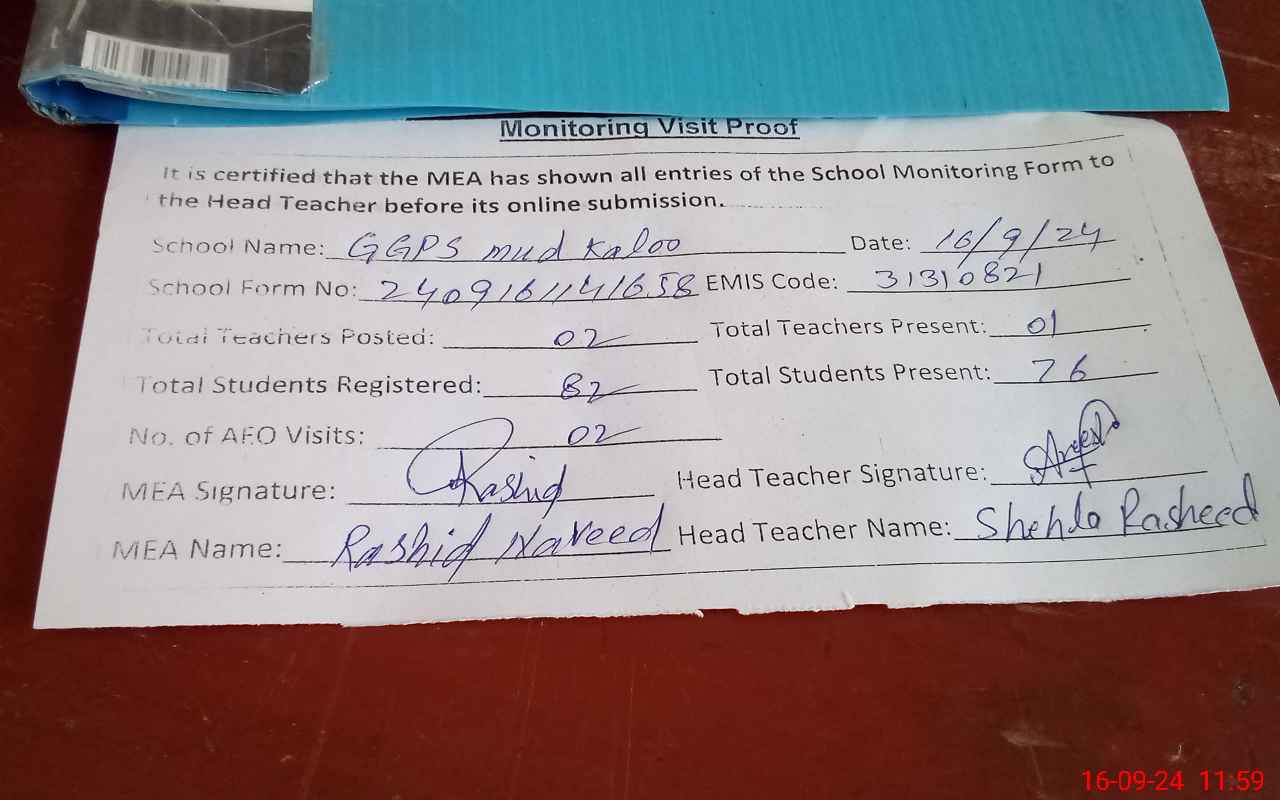 Monitoring Visit Proof
It is certified that the MEA has shown all entries of the School Monitoring Form to
the Head Teacher before its online submission.
School Name: GGPS mud Kaloo Date: 16/9/24
School Form No: 2409161141658 EMIS Code: 31310821
Total Teachers Posted: 02 Total Teachers Present: 01
Total Students Registered: 82 Total Students Present: 76
No. of AEO Visits: 02
MEA Signature: Rashid Head Teacher Signature:
MEA Name: Rashid Naveed Head Teacher Name: Shehla Rasheed
16-09-24 11:59